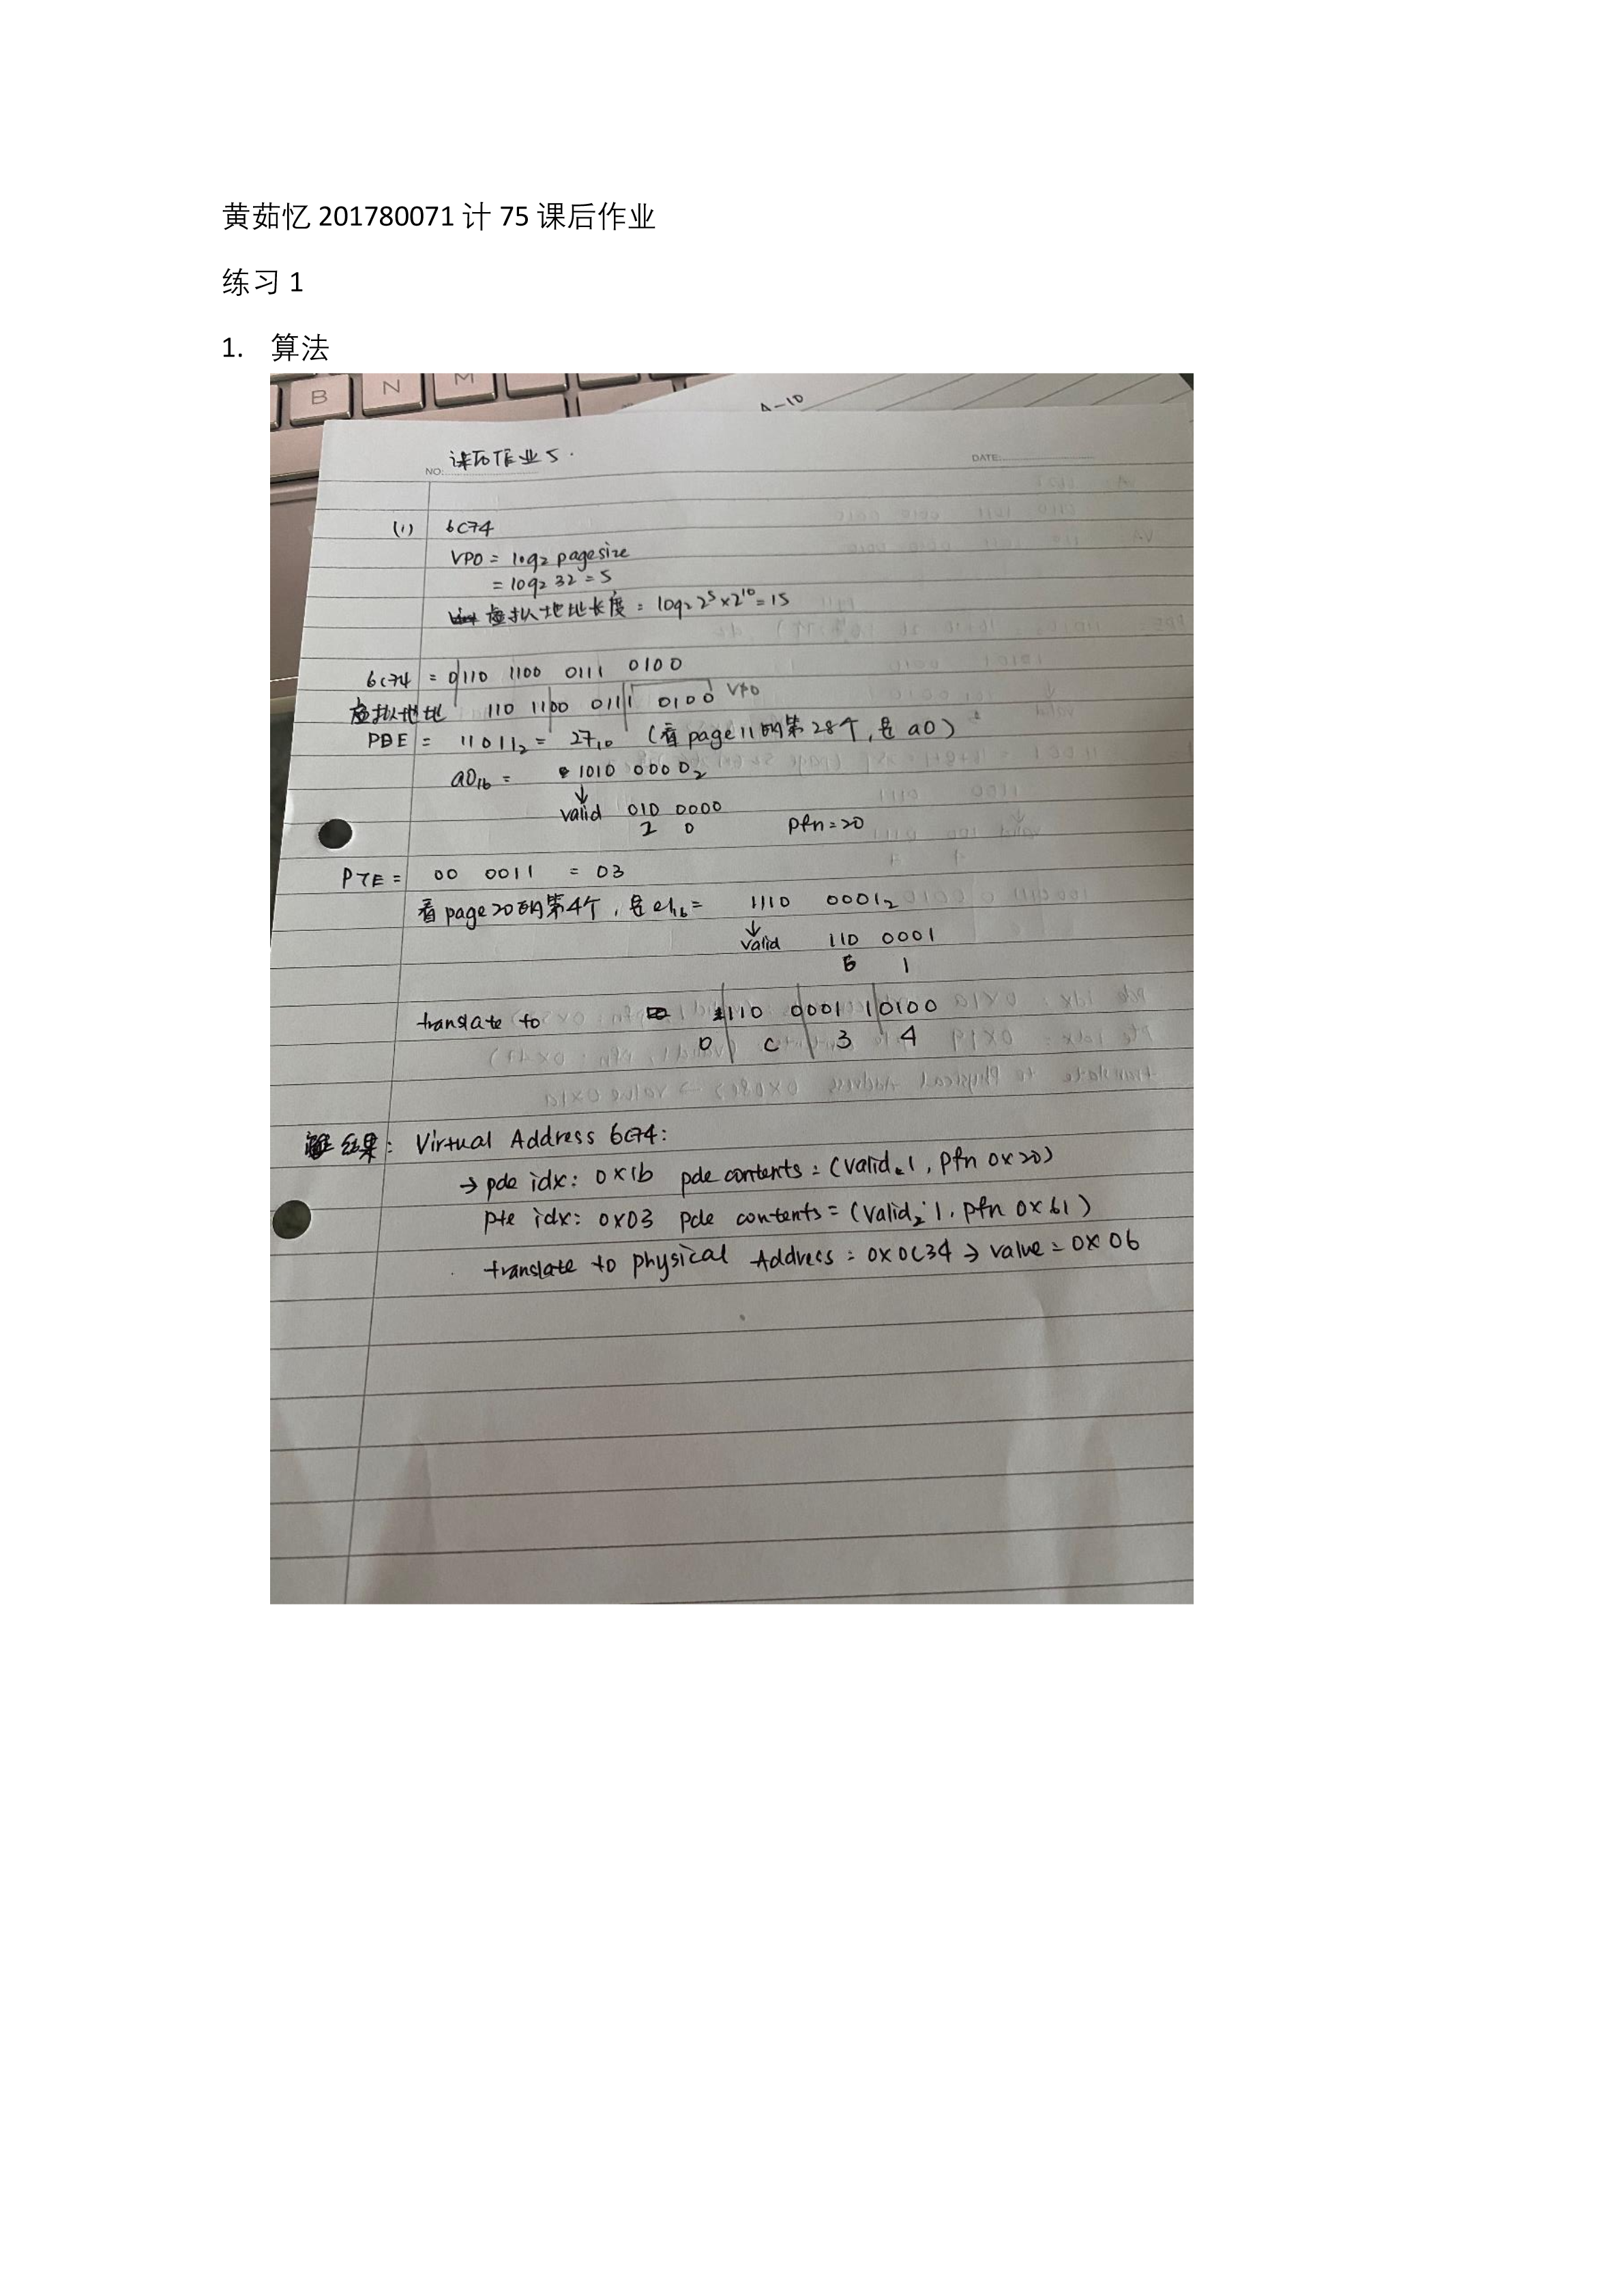 黄茹忆 201780071 计 75 课后作业
练习 1
1. 算法
B N M
A-10
NO: 课后作业5.
DATE:
(1) 6C74
VPO = log2 pagesize
= log2 32 = 5
虚拟地址长度: log2 2^5 x 2^10 = 15
6c74 = 0110 1100 0111 0100
虚拟地址 110 1100 0111 0100 VPO
PDE = 11011₂ = 27₁₀ (看page11的第28个,是a0)
a0₁₆ = 1010 0000₂
↓
valid 010 0000
2 0 Pfn=20
PTE = 00 0011 = 03
看page20的第4个,是e1₁₆= 1110 0001₂
↓
valid 110 0001
6 1
translate to 110 0001 1 0100
0 C 3 4
结果: Virtual Address 6C74:
→ pde idx: 0x1b pde contents: (valid 1, Pfn 0x20)
pte idx: 0x03 pde contents = (valid 1, Pfn 0x61)
translate to physical Address: 0x0C34 → value = 0x06